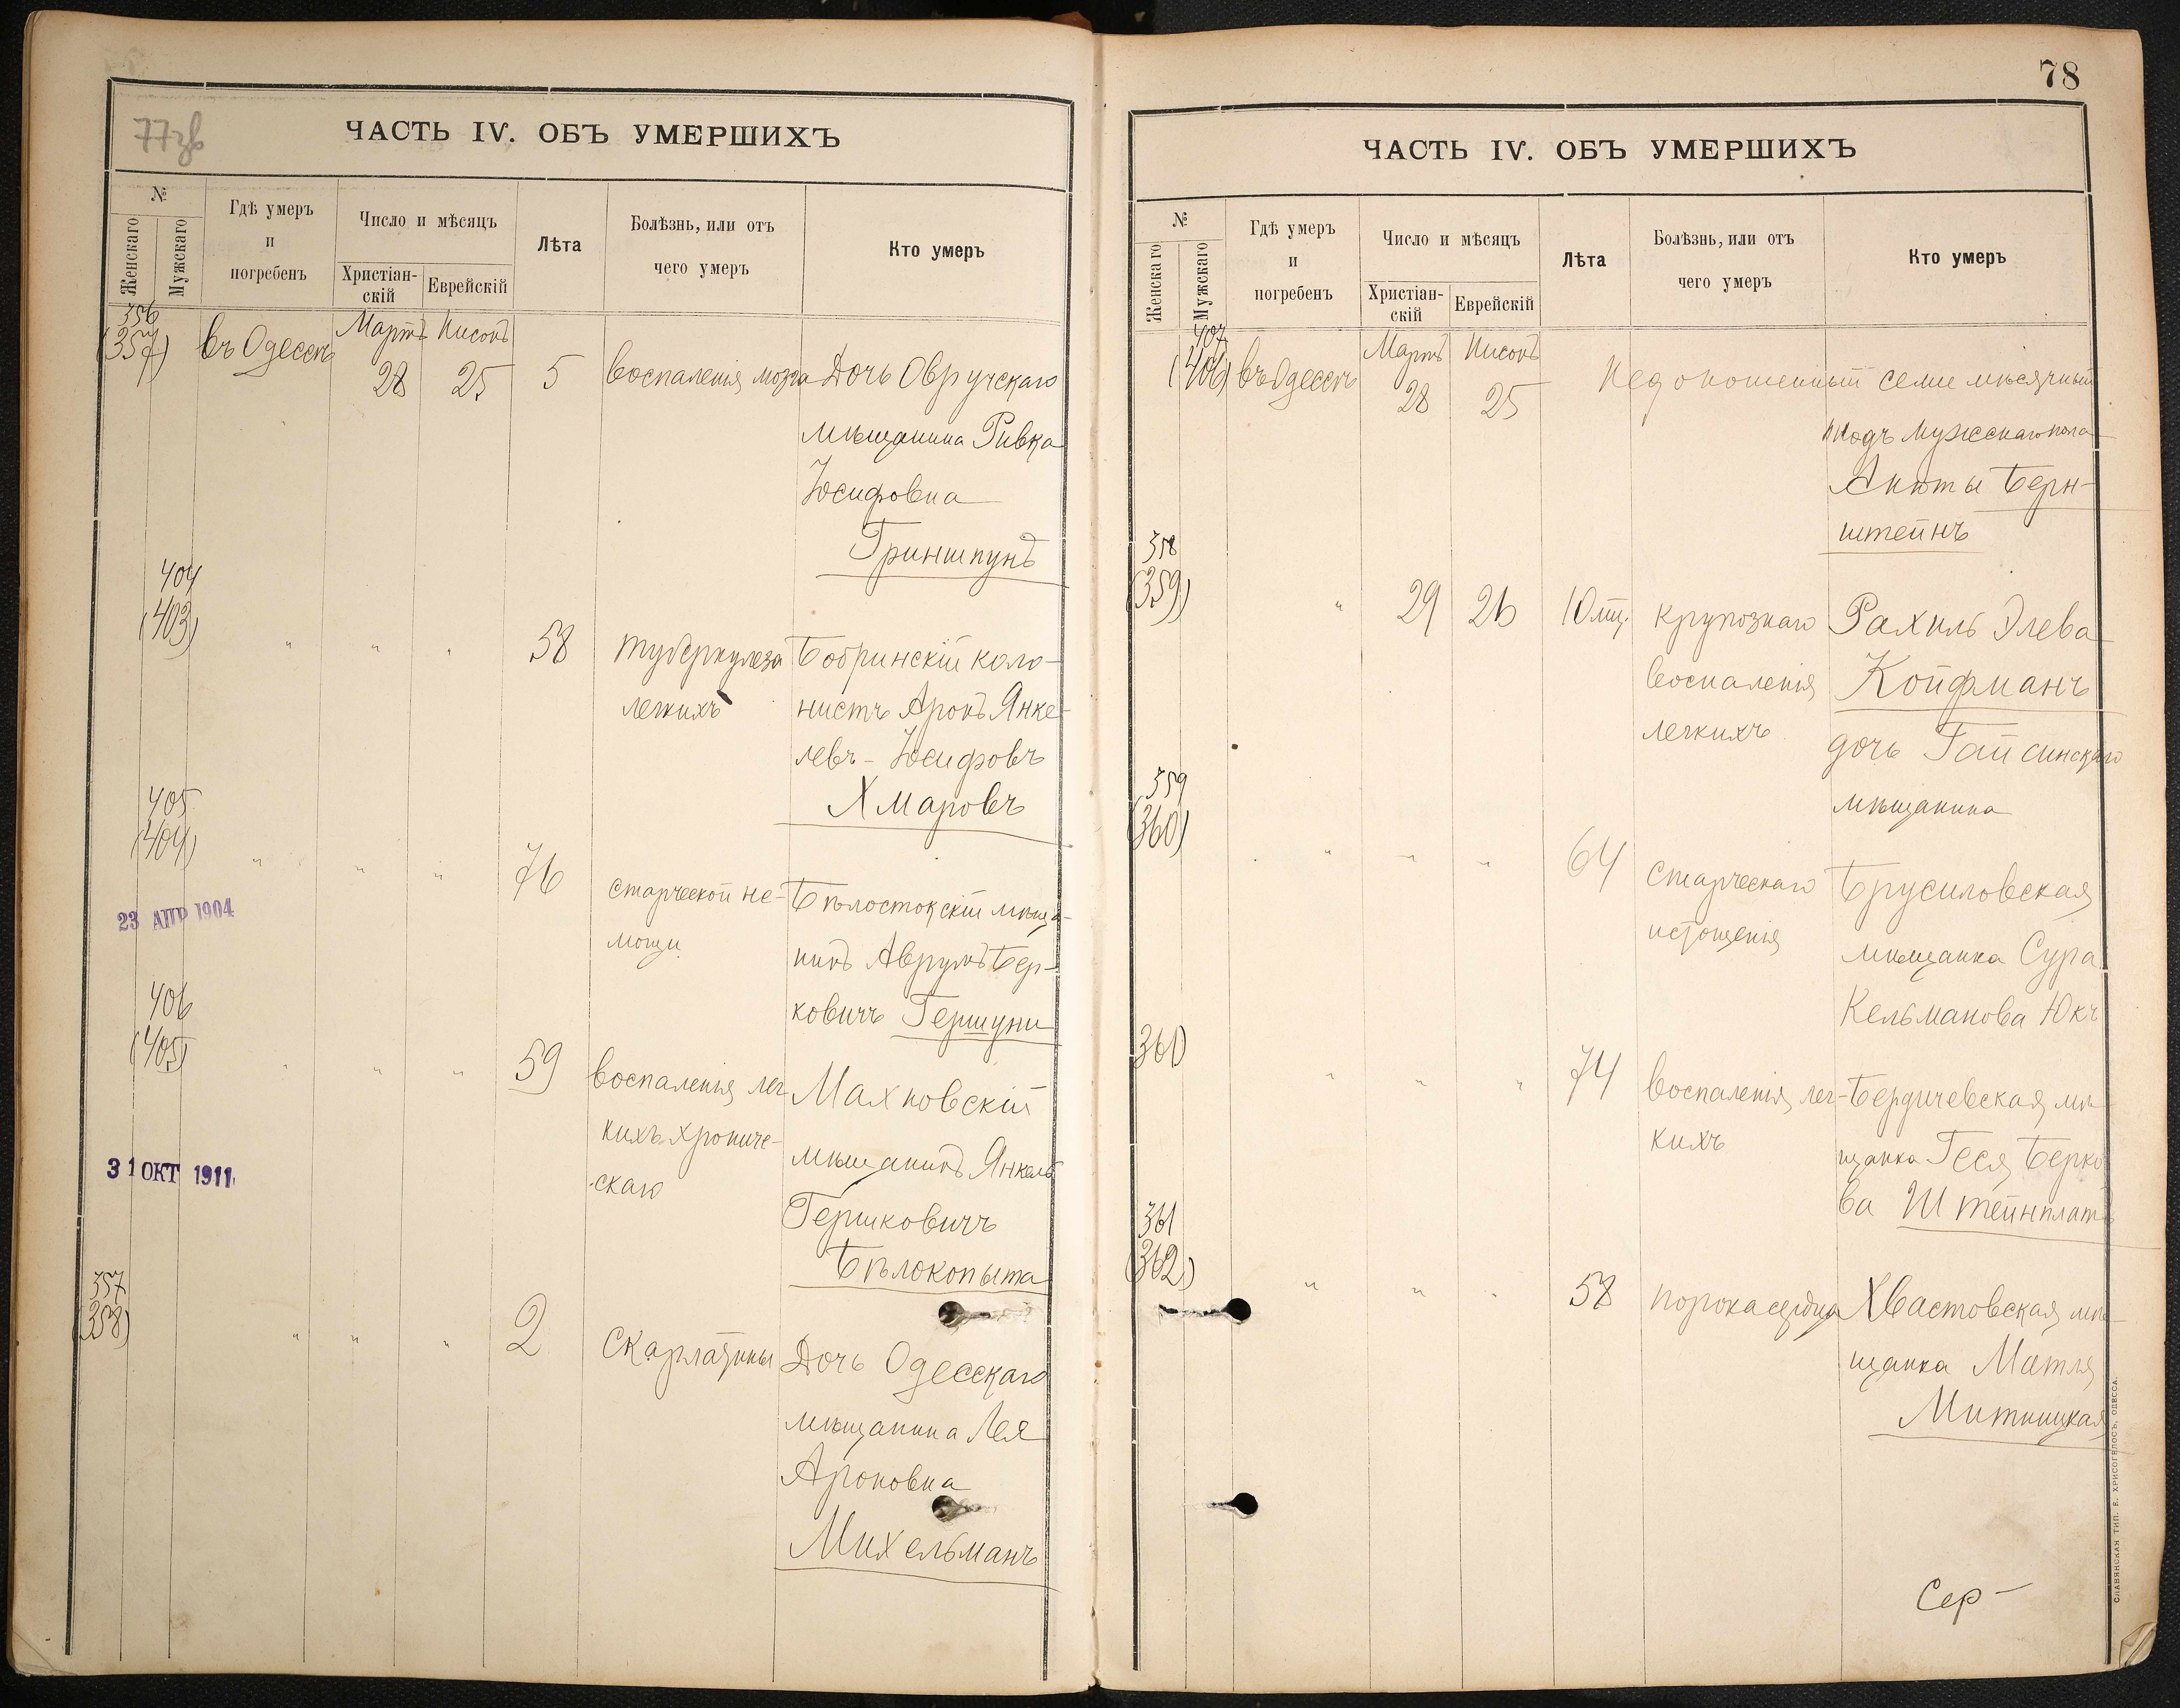 77зв
ЧАСТЬ IV. ОБЪ УМЕРШИХЪ
№
Женскаго
Мужскаго
Гдѣ умеръ
и
погребенъ
Число и мѣсяцъ
Христіан-
скій
Еврейскій
Лѣта
Болѣзнь, или отъ
чего умеръ
Кто умеръ
356
(357)
въ Одессѣ
Мартъ Нисонъ
28 25 5 воспаленія мозга Дочь Овручскаго
мѣщанина Ривка
Іосифовна
Гриншпунъ
404
(403)
" " " 58 туберкулеза Бобринскій коло-
легкихъ нистъ Аронъ Янке-
левъ-Іосифовъ
Хмаровъ
405
(404)
" " " 76 старческой не- Бѣлостокскій мѣща-
23 АПР 1904
мощи нинъ Аврумъ Бер-
ковичъ Гершуни
406
(405)
" " " 59 воспаленія лег- Махновскій
кихъ хрониче- мѣщанинъ Янкель
31 ОКТ 1911
скаго Гершковичъ
Бѣлокопыта
357
(358)
" " " 2 скарлатины Дочь Одесскаго
мѣщанина Лея
Ароновна
Михельманъ
78
ЧАСТЬ IV. ОБЪ УМЕРШИХЪ
№
Женскаго
Мужскаго
Гдѣ умеръ
и
погребенъ
Число и мѣсяцъ
Христіан-
скій
Еврейскій
Лѣта
Болѣзнь, или отъ
чего умеръ
Кто умеръ
407
(406)
въ Одессѣ
Мартъ Нисонъ
28 25 Недоношенный семимѣсячный
плодъ мужескаго пола
Анюты Берн-
штейнъ
358
(359)
" 29 26 10 мѣс. крупознаго Рахиль Элева
воспаленія Койфманъ
легкихъ дочь Гайсинскаго
мѣщанина
359
(360)
" " " 64 старческаго Брусиловская
истощенія мѣщанка Сура
Кельманова Юкъ
360
" " " 74 воспаленія лег- Бердичевская мѣ-
кихъ щанка Геся Берко-
ва Штейнплатъ
361
(362)
" " " 58 порока сердца Хвастовская мѣ-
щанка Матля
Митницкая
Сер-
СЛАВЯНСКАЯ ТИП. Е. ХРИСОГЕЛОСЪ, ОДЕССА.